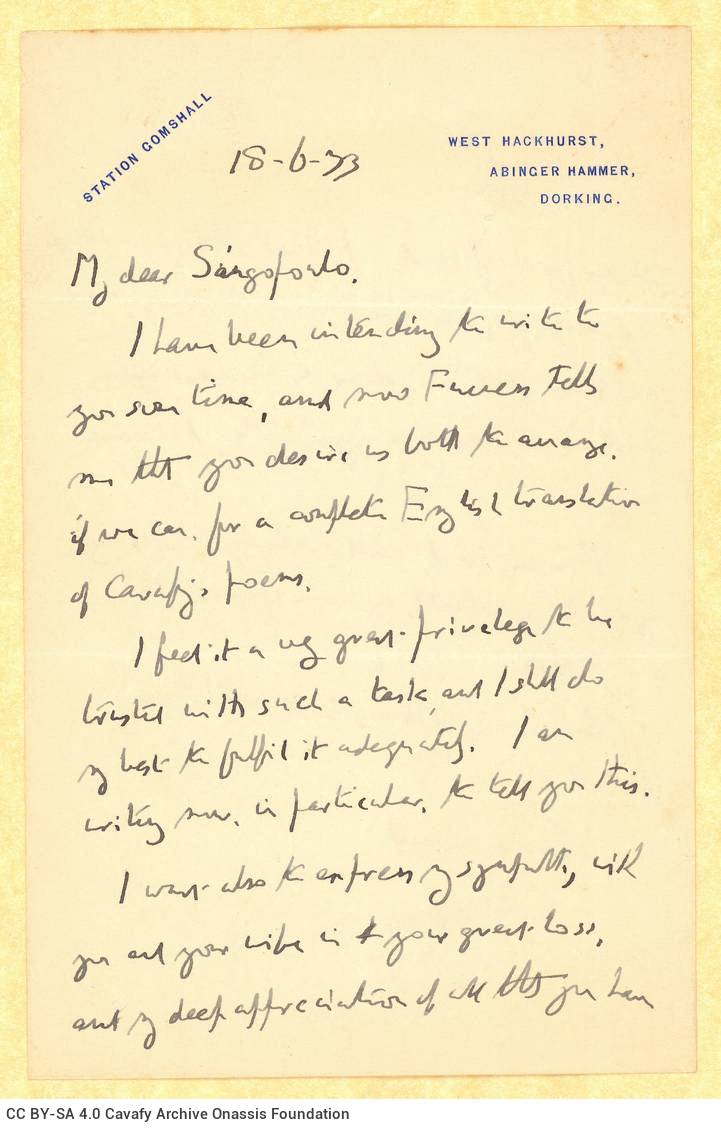 STATION GOMSHALL
WEST HACKHURST,
ABINGER HAMMER,
DORKING.
18-6-33
My dear Singopoulo.
I have been intending to write to
you some time, and now Furness tells
me that you desire us both to arrange,
if we can, for a complete English translation
of Cavafy's poems.
I feel it a very great privilege to be
trusted with such a task, and I shall do
my best to fulfil it adequately. I am
writing now, in particular, to tell you this.
I want also to express my sympathy, with
you and your wife in your great loss,
and my deep appreciation of all that you have
CC BY-SA 4.0 Cavafy Archive Onassis Foundation